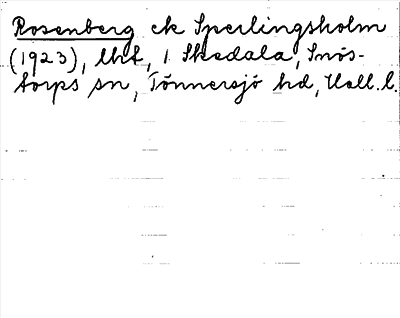 Rosenberg ek Sperlingsholm
(1923), lht, 1 Skedala, Snös-
torps sn, Tönnersjö hd, Hall. l.